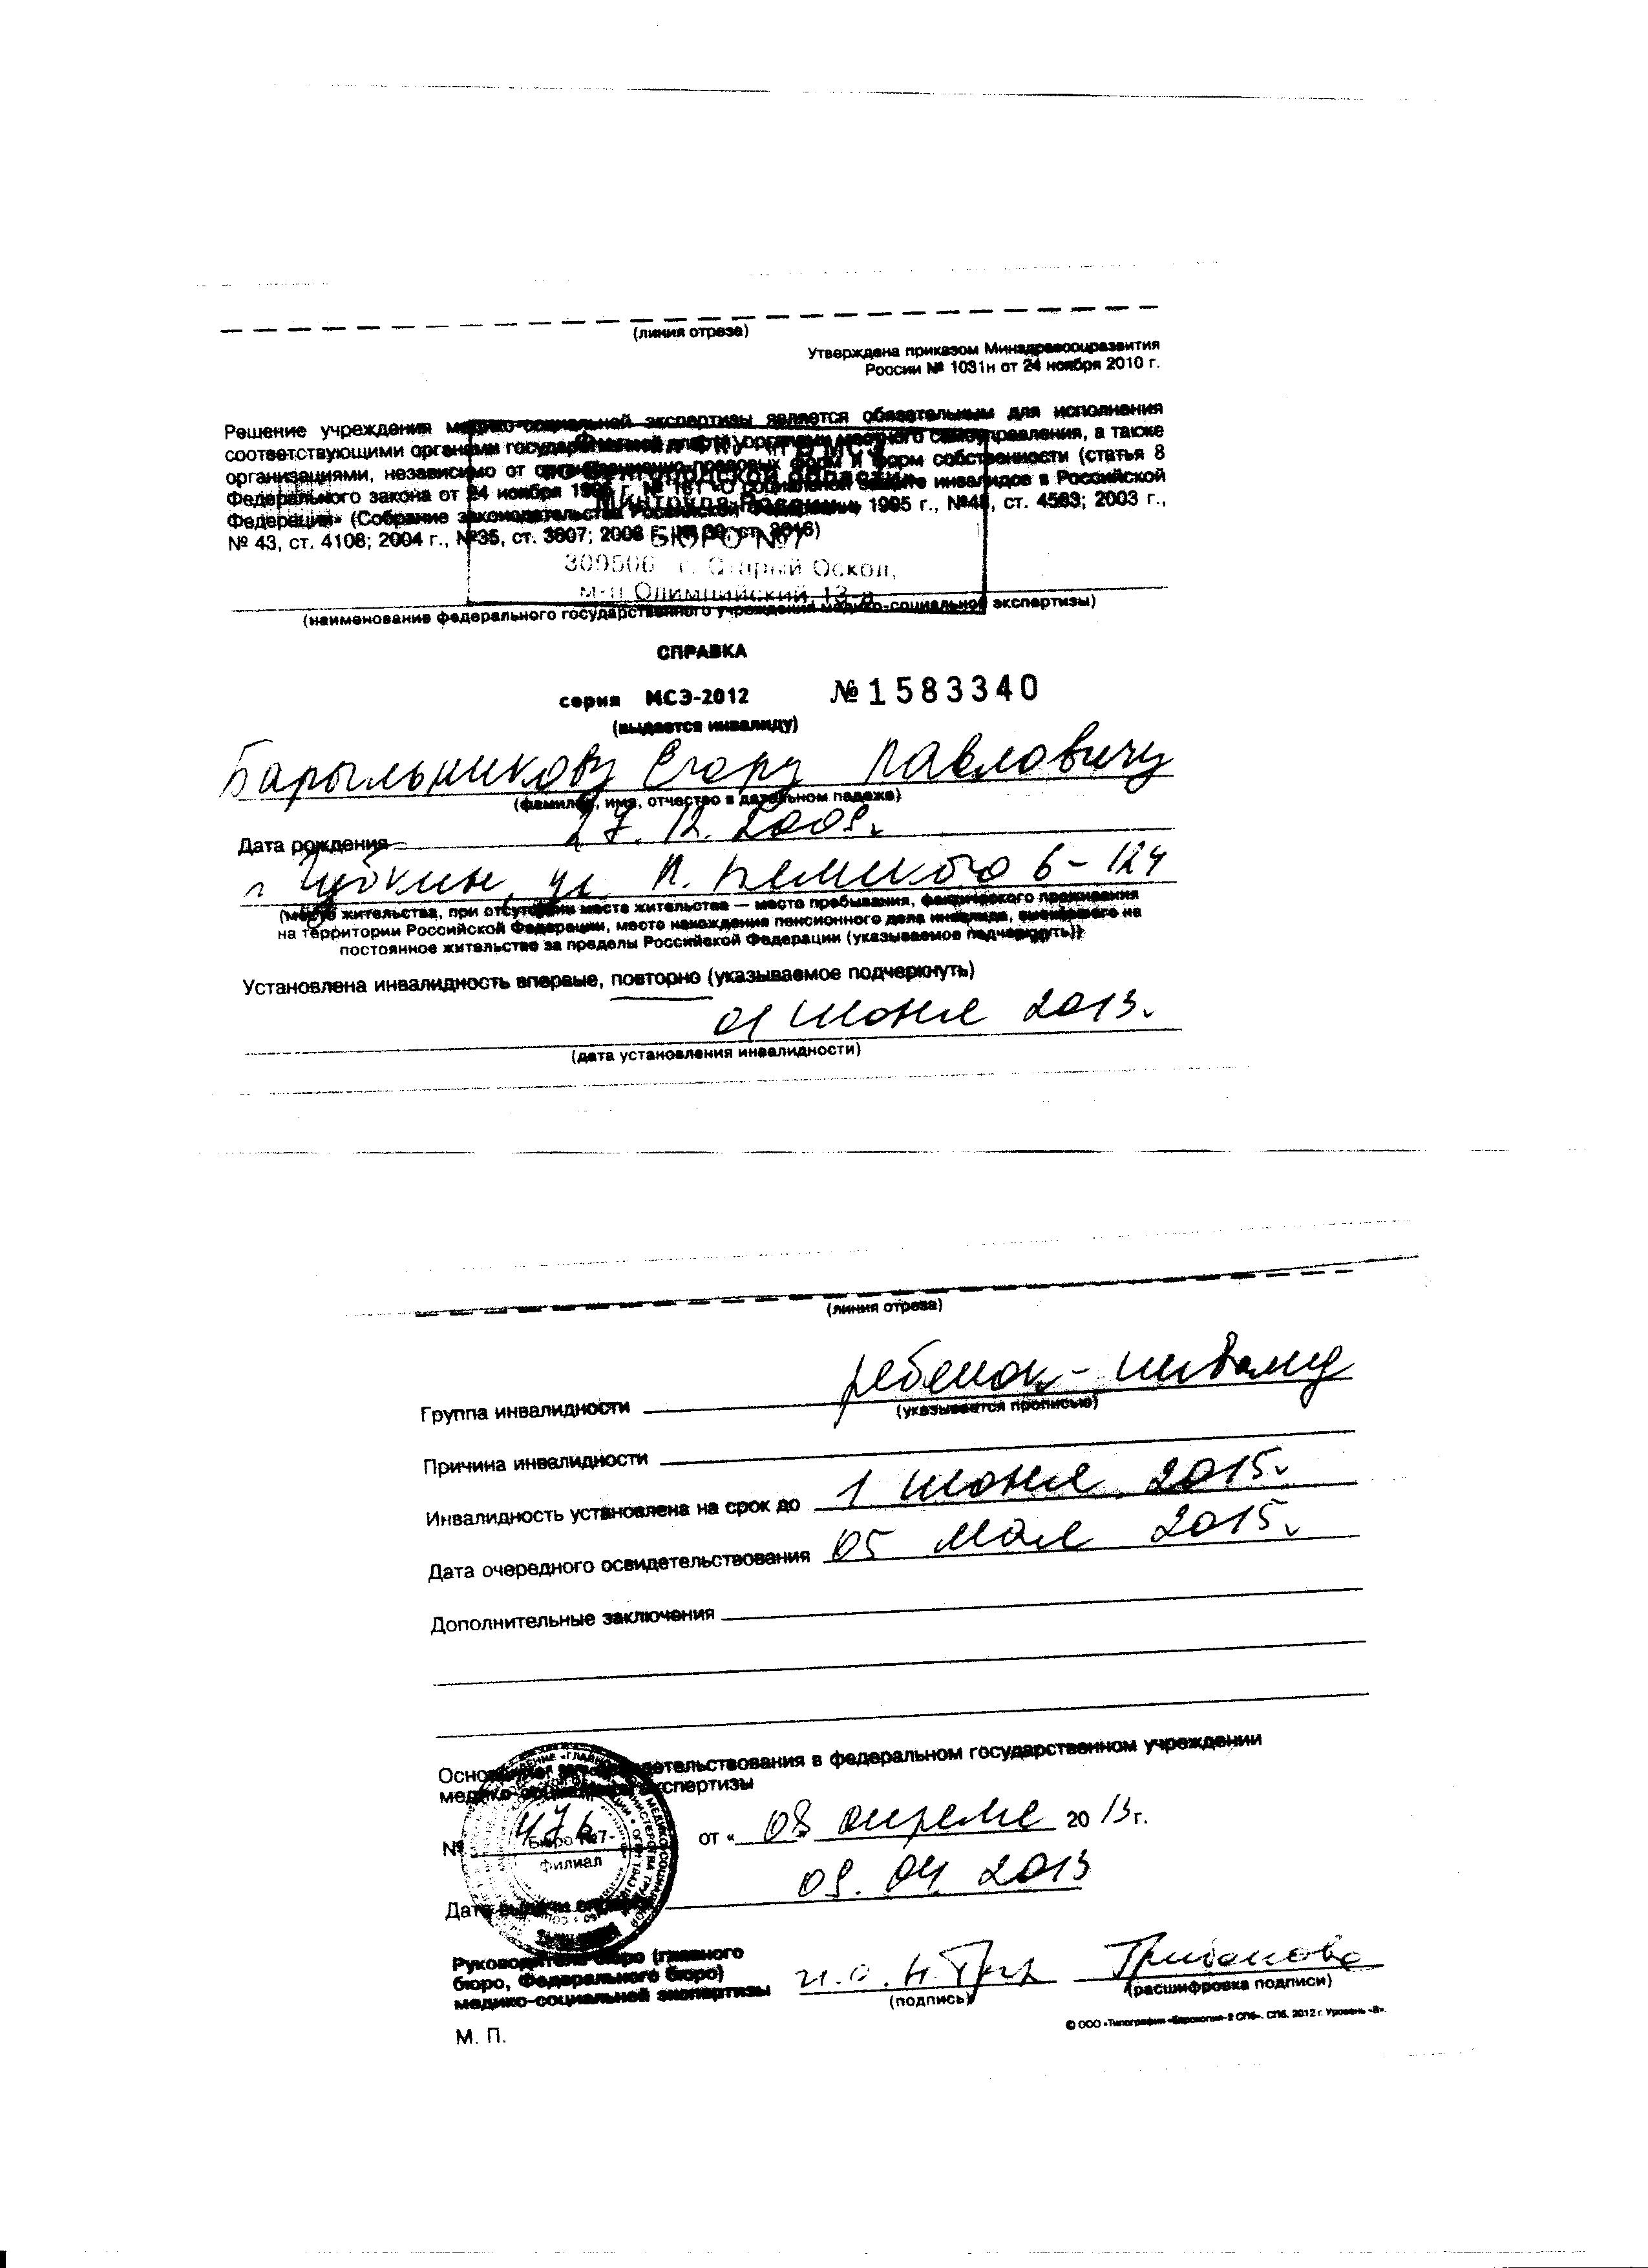 (линия отреза)
Утверждена приказом Минздравсоцразвития
России № 1031н от 24 ноября 2010 г.
Решение учреждения медико-социальной экспертизы является обязательным для исполнения
соответствующими органами государственной власти, органами местного самоуправления, а также
организациями, независимо от организационно-правовых форм и форм собственности (статья 8
Федерального закона от 24 ноября 1995 г. № 181 «О социальной защите инвалидов в Российской
Федерации» (Собрание законодательства Российской Федерации, 1995 г., №48, ст. 4563; 2003 г.,
№ 43, ст. 4108; 2004 г., №35, ст. 3607; 2008 г.
МСЭ
Белгородской области
Минтруда России
БЮРО №7
309506 г. Старый Оскол,
м-н Олимпийский, 13
(наименование федерального государственного учреждения медико-социальной экспертизы)
СПРАВКА
серия МСЭ-2012 №1583340
(выдается инвалиду)
Барыльникову Егору Павловичу
(фамилия, имя, отчество в дательном падеже)
Дата рождения 27.12.2009г.
г Губкин, ул. 6-124
(место жительства, при отсутствии места жительства — место пребывания, фактического проживания
на территории Российской Федерации, место нахождения пенсионного дела инвалида, выехавшего на
постоянное жительство за пределы Российской Федерации (указываемое подчеркнуть))
Установлена инвалидность впервые, повторно (указываемое подчеркнуть)
01 июня 2013г.
(дата установления инвалидности)
(линия отреза)
Группа инвалидности ребенок-инвалид
(указывается прописью)
Причина инвалидности
Инвалидность установлена на срок до 1 июня 2015г.
Дата очередного освидетельствования 05 мая 2015г.
Дополнительные заключения
Основание: акт освидетельствования в федеральном государственном учреждении
медико-социальной экспертизы
№ 476 от « 08 апреля 2013г.
Бюро №7-
филиал
Дата выдачи справки 09.04.2013
Руководитель бюро (главного
бюро, Федерального бюро)
медико-социальной экспертизы и.о. Грибанова
(подпись) (расшифровка подписи)
М. П.
© ООО «Типография «Еврокопия-2 СПб». СПб. 2012 г. Уровень «В».